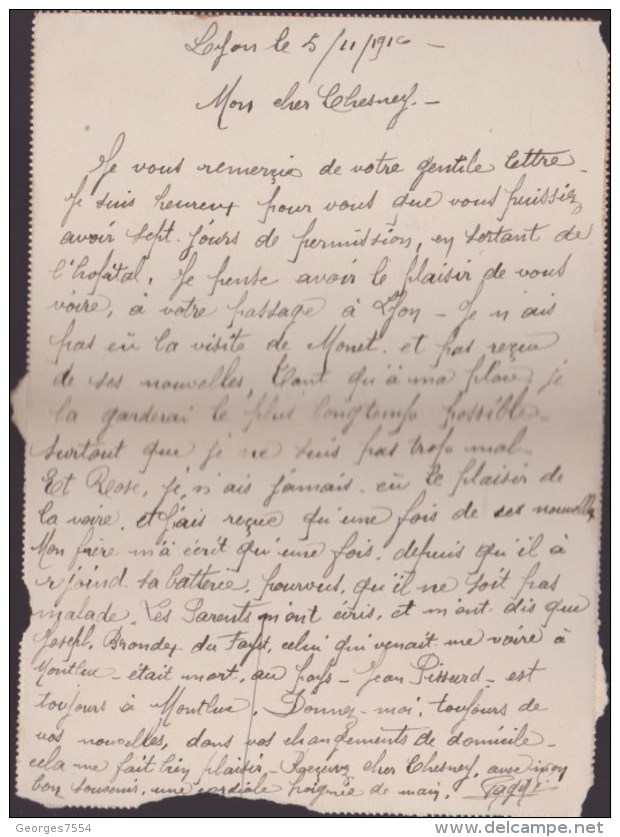 Lyon le 5/11/191
Mon cher Chesney. -
Je vous remerçie de votre gentile lettre
Je suis heureux pour vous que vous puissiez
avoir sept jours de permission, en sortant de
l'hopâtal, Je pense avoir le plaisir de vous
voire, à votre passage à Lyon - Je n'ais
pas eü la visite de Monet. et pas reçue
de ses nouvelles, Tant qu'à ma place, je
la garderai le plus longtemps possible
surtout que je ne suis pas trop mal -
Et Rose, je n'ais jamais eü le plaisir de
la voire, et j'ais reçue qu'une fois de ses nouvelles
Mon frère m'à écrit qu'une fois, depuis qu'il à
rjoind sa batterie, pourvus, qu'il ne soit pas
malade, Les Parents m'ont écris, et m'ont dis que
Joseph, Brondex du celui qui venait me voire à
Montluc - était mort, au pays - Jean Pissard - est
toujours à Montluc, Donnez-moi, toujours de
vos nouvelles, dans vos changements de domicile -
cela me fait bien plaisir, - Reçevez cher Chesney, avec mon
bon souvenir, une cordiale poignée de main,
Georges7554